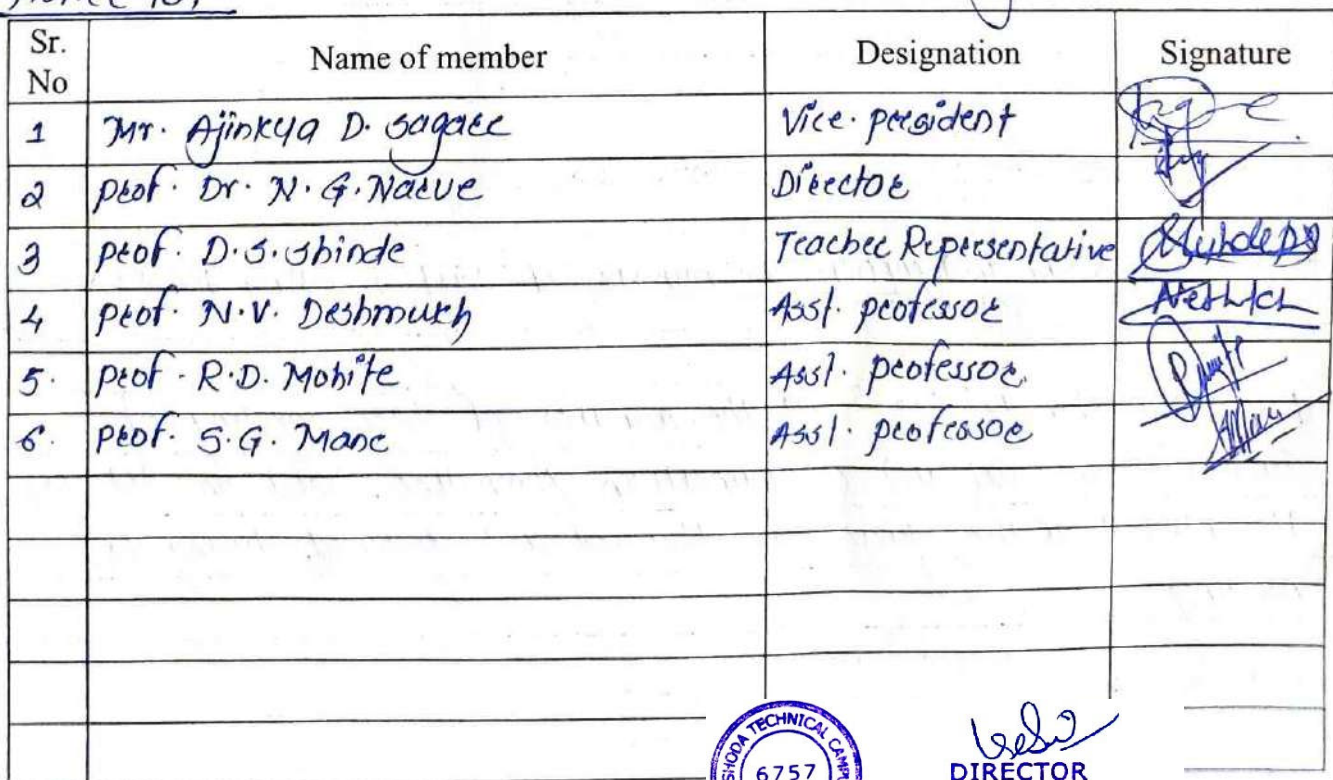 Sr. No Name of member Designation Signature
1 Mr. Ajinkya D. Sagare Vice. president
2 Prof. Dr. N. G. Narve Director
3 Prof. D. S. Shinde Teacher Representative
4 Prof. N. V. Deshmukh Asst. professor
5. Prof. R. D. Mohite Asst. professor
6. Prof. S. G. Mane Asst. professor
SHODA TECHNICAL CAMPU
6757
DIRECTOR